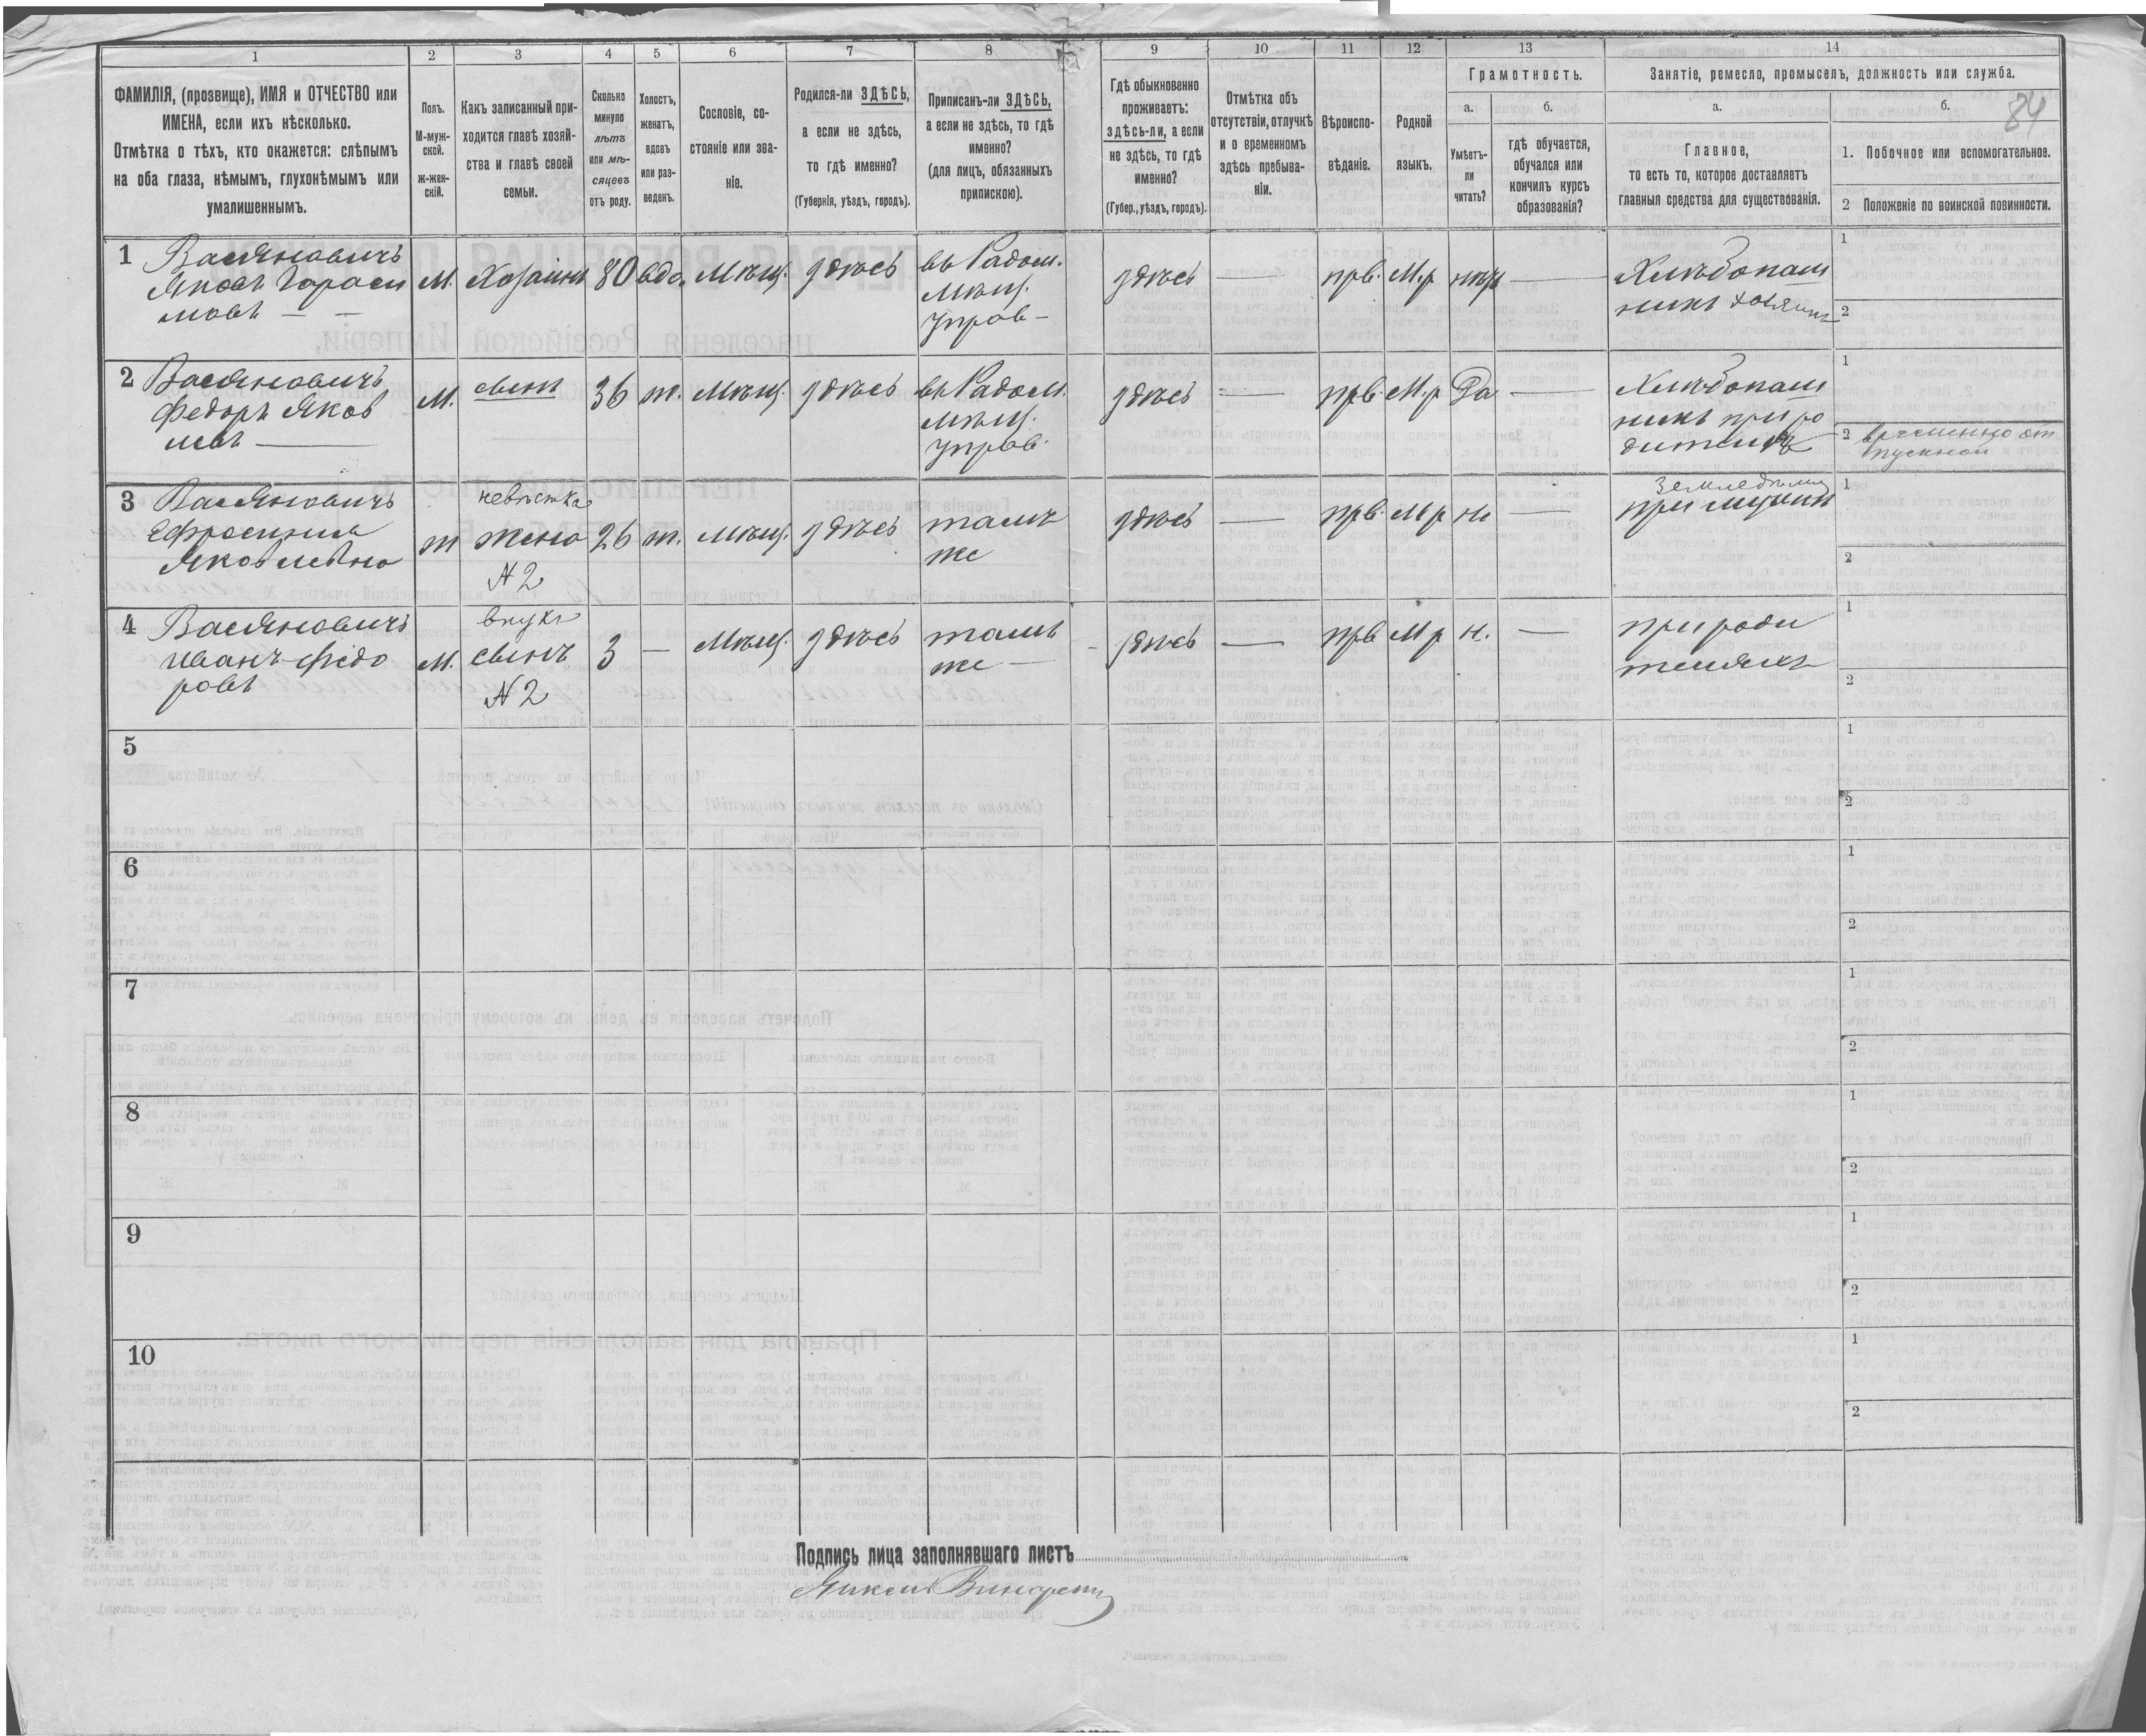 1 2 3 4 5 6 7 8 9 10 11 12 13 14
84
ФАМИЛІЯ, (прозвище), ИМЯ и ОТЧЕСТВО или
ИМЕНА, если ихъ нѣсколько.
Отмѣтка о тѣхъ, кто окажется: слѣпымъ
на оба глаза, нѣмымъ, глухонѣмымъ или
умалишеннымъ.
Полъ.
М-муж-
ской.
ж-жен-
скій.
Какъ записанный при-
ходится главѣ хозяй-
ства и главѣ своей
семьи.
Сколько
минуло
лѣтъ
или мѣ-
сяцевъ
отъ роду.
Холостъ,
женатъ,
вдовъ
или раз-
веденъ.
Сословіе, со-
стояніе или зва-
ніе.
Родился-ли ЗДѢСЬ,
а если не здѣсь,
то гдѣ именно?
(Губернія, уѣздъ, городъ).
Приписанъ-ли ЗДѢСЬ,
а если не здѣсь, то гдѣ
именно?
(для лицъ, обязанныхъ
припискою).
Гдѣ обыкновенно
проживаетъ:
здѣсь-ли, а если
не здѣсь, то гдѣ
именно?
(Губер., уѣздъ, городъ).
Отмѣтка объ
отсутствіи, отлучкѣ
и о временномъ
здѣсь пребыва-
ніи.
Вѣроиспо-
вѣданіе.
Родной
языкъ.
Грамотность.
а. б.
Умѣетъ-
ли
читать?
гдѣ обучается,
обучался или
кончилъ курсъ
образованія?
Занятіе, ремесло, промыселъ, должность или служба.
а. б.
Главное,
то есть то, которое доставляетъ
главныя средства для существованія.
1. Побочное или вспомогательное.
2 Положеніе по воинской повинности.
1
Васяновичъ
Яковъ Гараси
мовъ
М.
Хозяинъ
80
вдо.
Мѣщ.
здѣсь
въ Радом.
мѣщ.
управ-
здѣсь
—
прв.
М.р
нѣт
—
Хлѣбопаш
никъ хозяинъ
1
2
2
Васяновичъ
Федоръ Яков
левъ
М.
сынъ
36
ж.
Мѣщ.
здѣсь
въ Радом.
мѣщ.
управ.
здѣсь
—
прв.
М.р
Да
—
Хлѣбопаш
никъ при ро
дителѣ
1
2 временно от
пускной
3
Васяновичъ
Ефросинія
Яковлевна
ж
невѣстка
жена
№2
26
ж.
мѣщ.
здѣсь
тамъ
же
здѣсь
—
прв.
М р
н
—
при мужи
1
2
4
Васяновичъ
Иванъ Федо
ровъ
М.
внукъ
сынъ
№2
3
—
Мѣщ.
здѣсь
тамъ
же
здѣсь
—
прв
М р
н.
—
при роди
теляхъ
1
2
5
1
2
6
1
2
7
1
2
8
1
2
9
1
2
10
1
2
Подпись лица заполнявшаго листъ